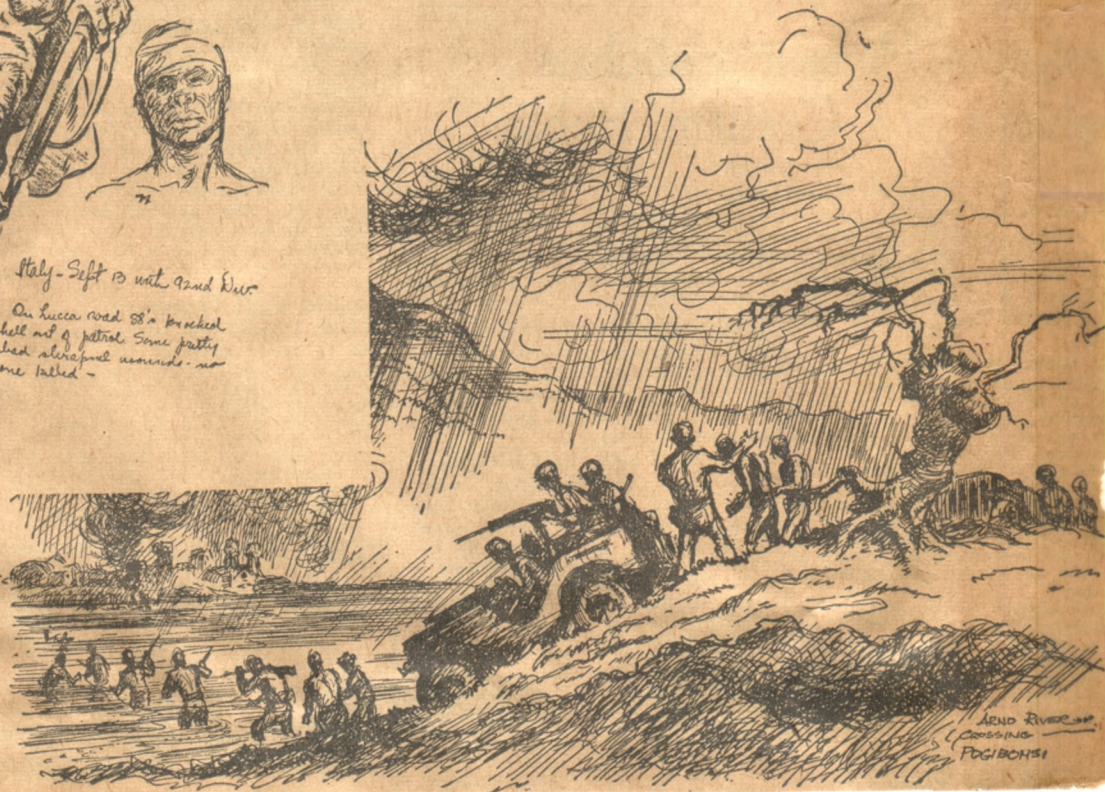 Italy - Sept 13 with 92nd Div.
On Lucca road 88's knocked
hell out of patrol Some pretty
bad shrapnel wounds - no
one killed -
ARNO RIVER
CROSSING
POGIBONSI